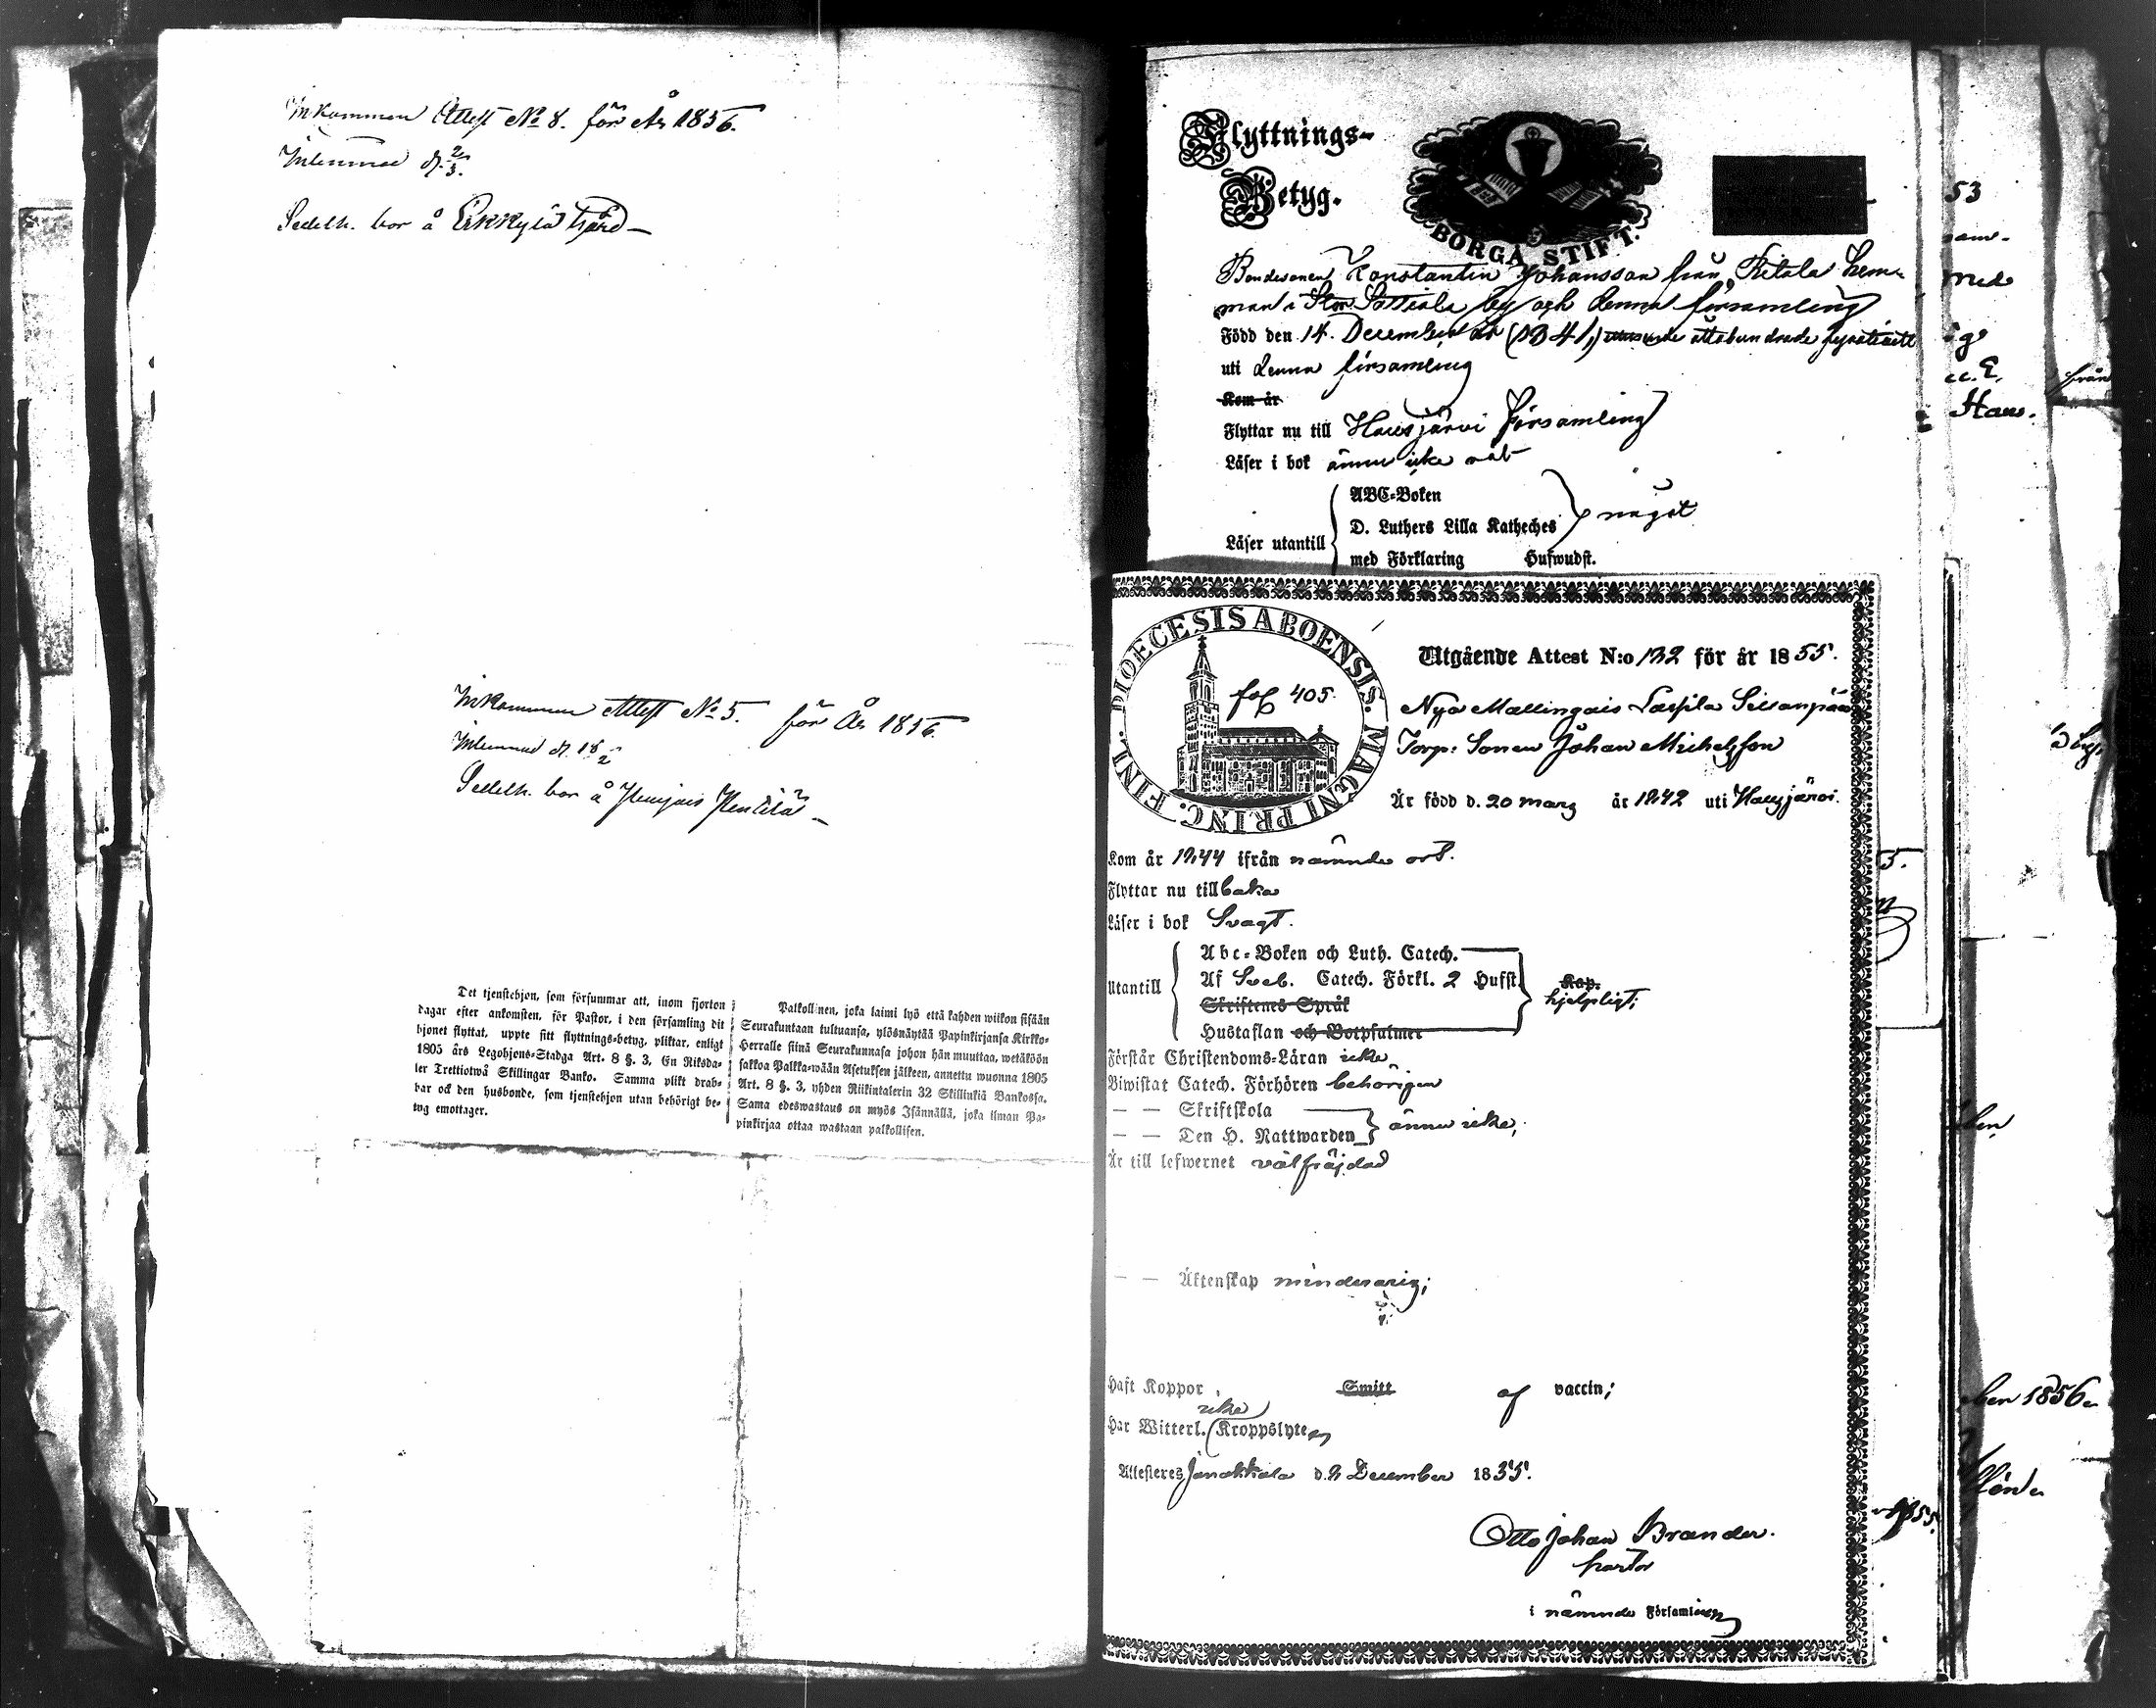 Inkommen Attest No 8. för År 1856.
Inlemnad d. 2/3.
Sedelh. bor å Erkkylä Gård
Inkommen Attest No 5. för År 1856.
Inlemnad d. 18/2
Sedelh. bor å
Det tjenstehjon, som försummar att, inom fjorton
dagar efter ankomsten, för Pastor, i den församling dit
hjonet flyttat, uppte sitt flyttnings-betyg, pliktar, enligt
1805 års Legohjons-Stadga Art. 8 §. 3, En Riksda-
ler Trettiotwå Skillingar Banko. Samma plikt drab-
bar ock den husbonde, som tjenstehjon utan behörigt be-
tyg emottager.
Palkollinen, joka laimi lyö että kahden wiikon sisään
Seurakuntaan tultuansa, ylösnäytää Papinkirjansa Kirkko-
Herralle siinä Seurakunnasa johon hän muuttaa, wetäköön
sakkoa Palkka-wään Asetuksen jälkeen, annettu wuonna 1805
Art. 8 §. 3, yhden Riikintalerin 32 Skillinkiä Bankossa.
Sama edeswastaus on myös Isännällä, joka ilman Pa-
pinkirjaa ottaa wastaan palkollisen.
Flyttnings-
Betyg.
BORGÅ STIFT.
Bondesonen Konstantin Johansson från Ritala hem-
man i Stor Sattiala by och denna församling
Född den 14. December år (1841,) ettusende åttahundrade fyratioett
uti denna församling
Kom år
Flyttar nu till Hausjärvi Församling
Läser i bok ännu icke nåt
ABC-Boken
D. Luthers Lilla Katheches
något
Läser utantill
med Förklaring Hufwudst.
DIOECESIS ABOENSIS. MAGNI PRINC. FINL.
fol 405.
Utgående Attest N:o 132 för år 1855.
Nya Mallingais Laspila Sillanpää
Torp: Sonen Johan Michelsson
Är född d. 20 mars år 1842 uti Hausjärvi.
Kom år 1844 ifrån nämnde ort.
Flyttar nu tillbaka
Läser i bok Svagt.
Utantill
Abc-Boken och Luth. Catech.
Af Sveb. Catech. Förkl. 2 Hufst.
Skriftenes Språk
Hustaflan och Botpsalmer
Kap.
hjelpligt;
Förstår Christendoms-Läran icke
Biwistat Catech. Förhören behörigen
— — Skriftskola
— — Den H. Nattwarden
ännu icke;
Är till lefwernet välfräjdad
— — Äktenskap minderårig;
Haft Koppor Smitt af vaccin;
icke
Har Witterl. Kroppslyte
Attesteres Janakkala d. 2 December 1855.
Otto Johan Brander.
pastor
i nämnde Församling
53
med
Haus.
från
1856
1855.